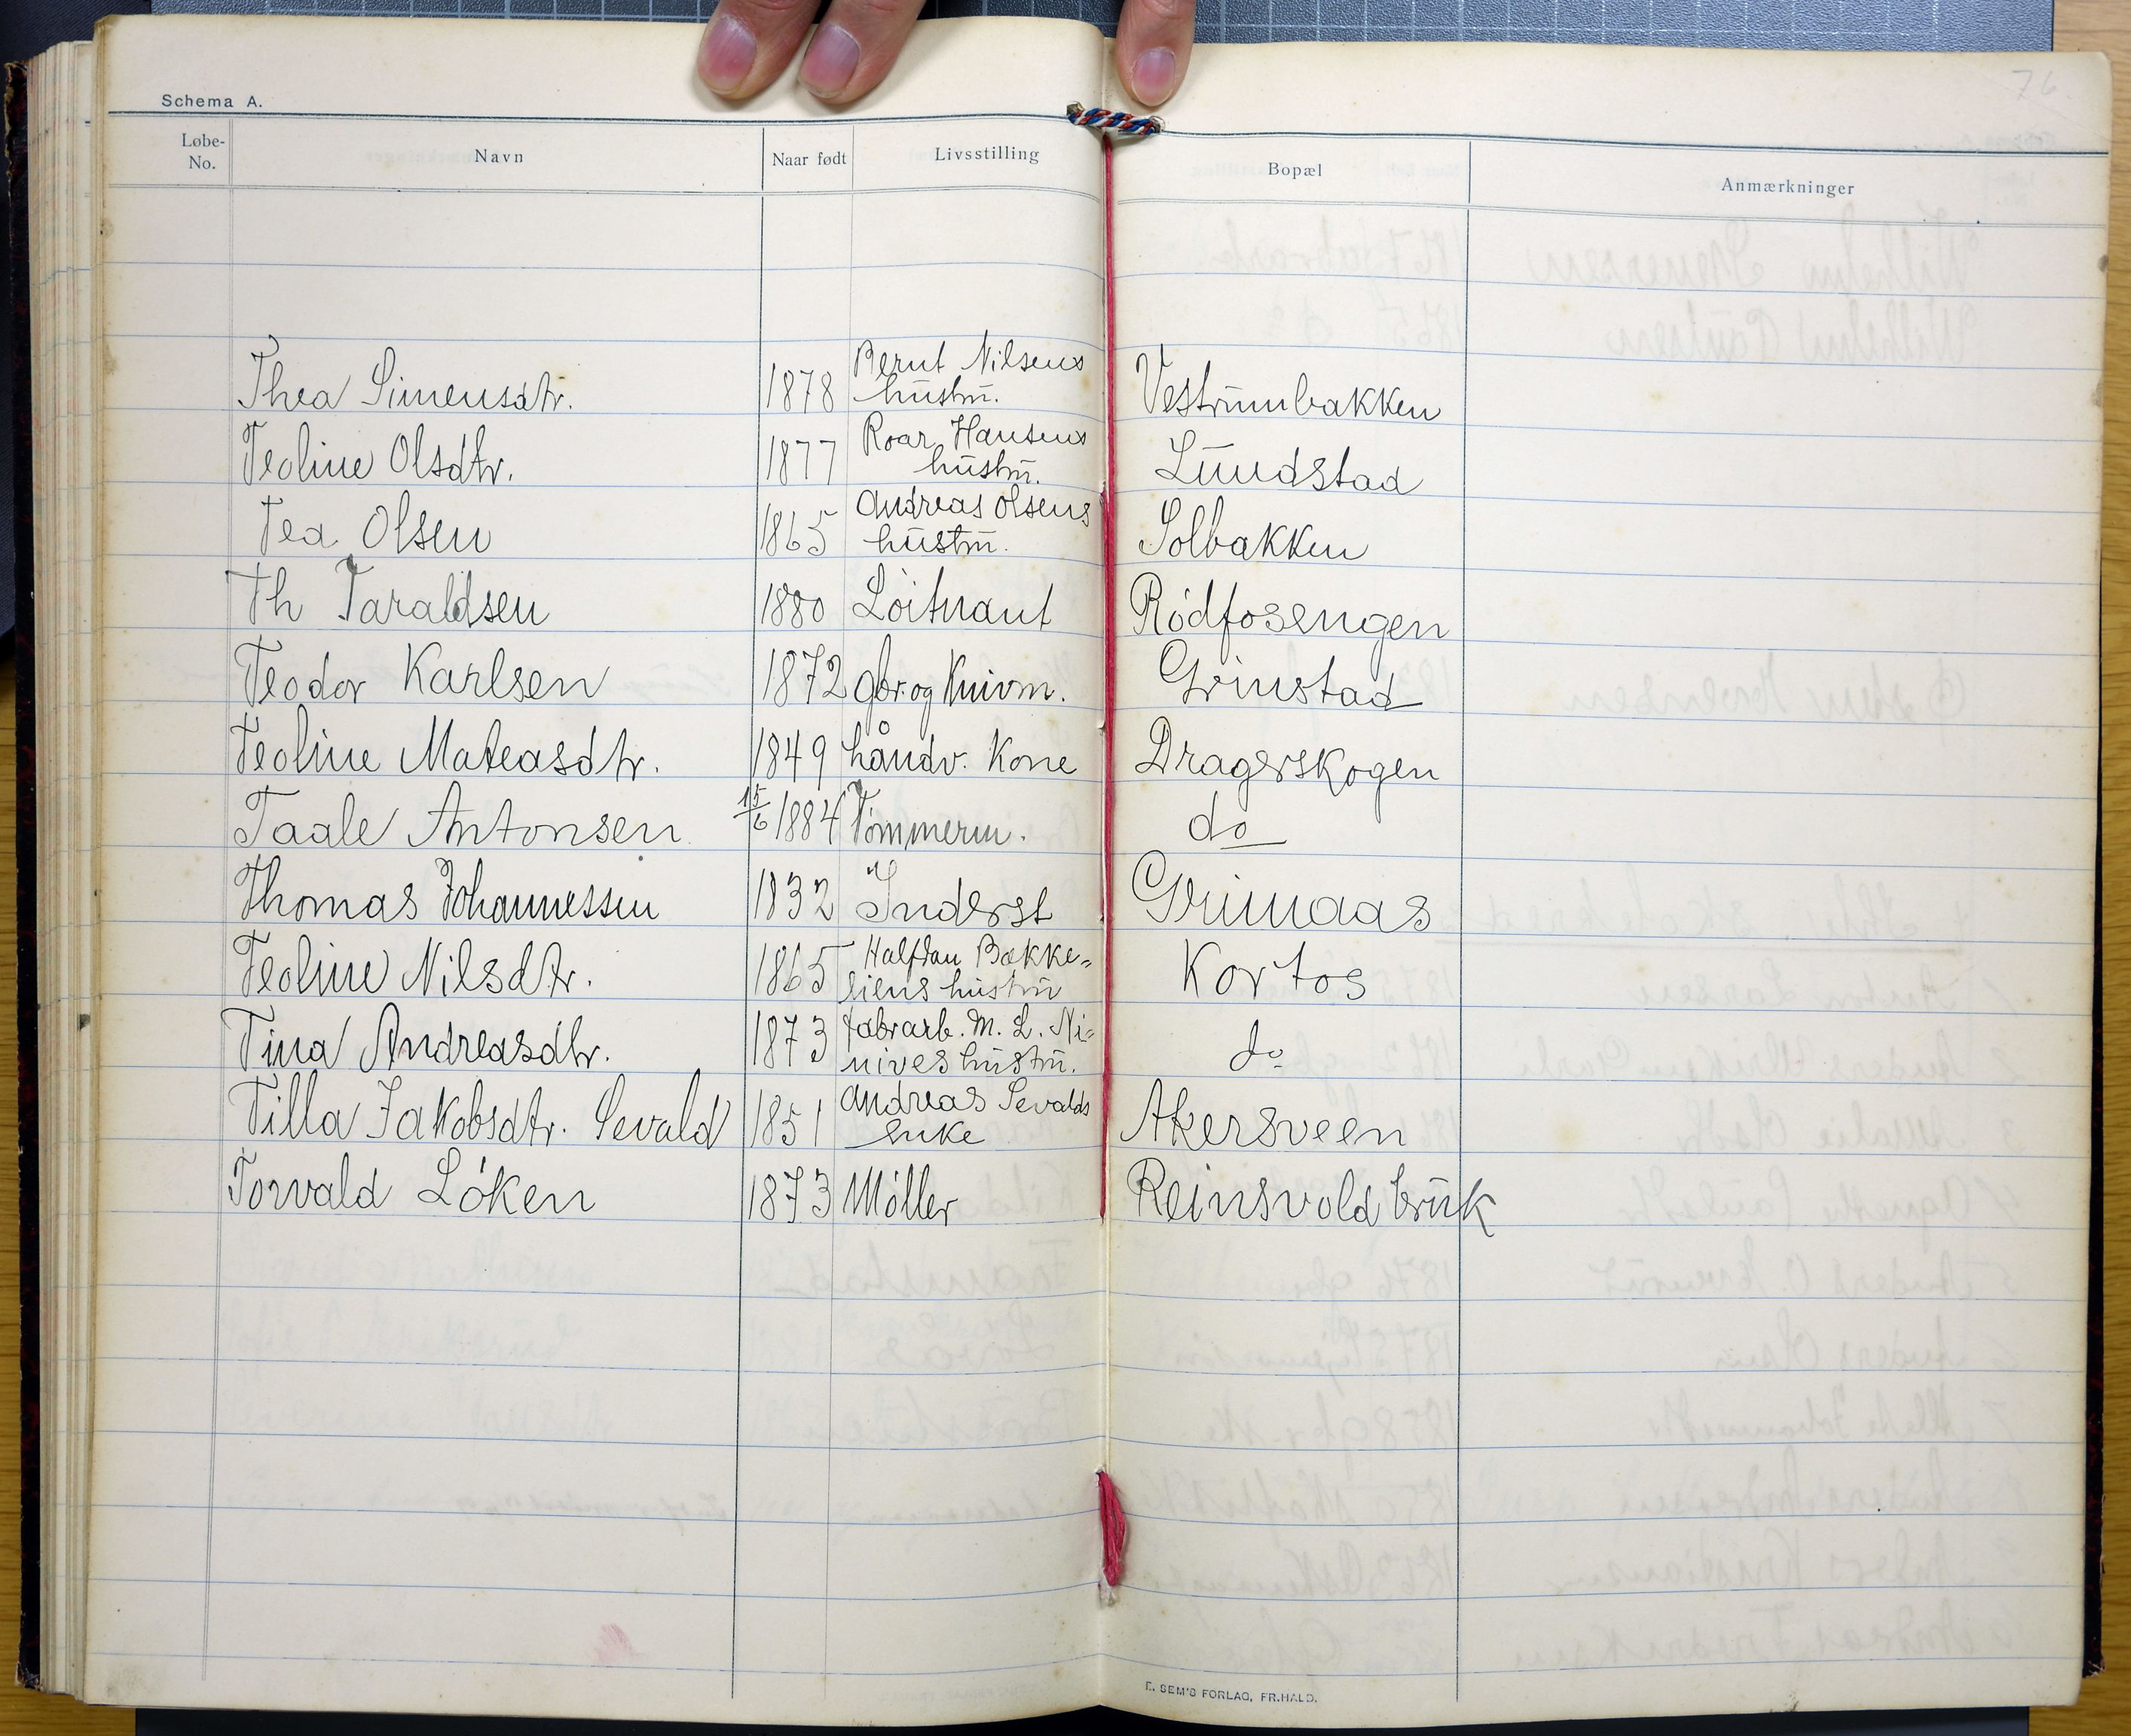 76
Schema A.
Løbe-No. Navn Naar født Livsstilling Bopæl Anmærkninger
Thea Simensdtr. 1878 Bernt Nilsens hustru. Vestrumbakken
Teoline Olsdtr. 1877 Roar Hansens hustru. Lundstad
Tea Olsen 1865 Andreas Olsens hustru. Solbakken
Th Taraldsen 1880 Löitnant Rödfosengen
Teodor Karlsen 1872 gbr. og Kuivm. Grinstad
Teoline Mateasdtr. 1849 håndv. Kone Dragerskogen
Taale Antonsen 15/6 1884 Tömmerm. do
Thomas Johannessen 1832 Inderst Grimaas
Teoline Nilsdtr. 1865 Halfdan Bække= liens hustru Kortos
Tina Andreasdtr. 1873 fabrarb. M. L. Ni= nives hustru. do
Tilla Jakobsdtr. Sevald 1851 Andreas Sevalds enke Akersveen
Torvald Löken 1873 Möller Reinsvold bruk
E. SEM'S FORLAG, FR.HALD.